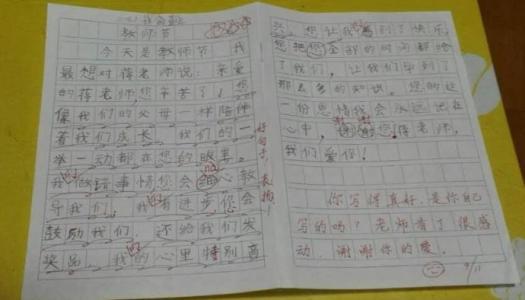 教师节
今天是教师节，我
最想对蒋老师说：亲爱
的蒋老师，您辛苦了！您
像我们的父母一样陪伴
着我们成长，我们的一
举一动都在您的眼里。
我做错事情您会细心教
导我们，我有进步您会
鼓励我们，还给我们发
奖品，我的心里特别高
兴，您让我看到了快乐，
您把您全部的时间都给
了我们，让我们学到了
那么多的知识。您的这
一份恩情我会永远记在
心中，谢谢您蒋老师，
我们爱您！
好句子，表扬！
你写得真好，是你自己
写的吗？老师看了很感
动，谢谢你的爱。
9/11